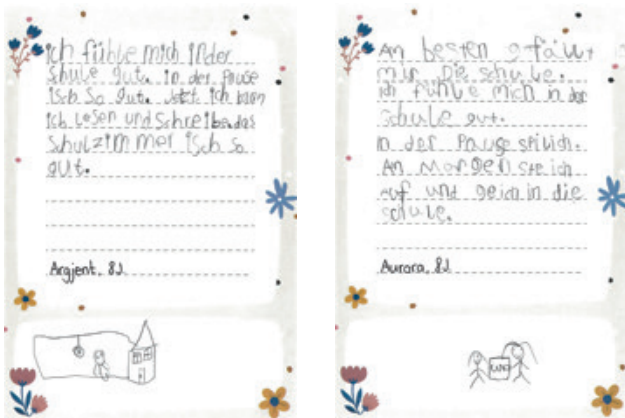 ich fühle mich in der
Schule gut. in der Pause
isch so gut. Jetzt ich kann
ich Lesen und Schreibe. das
Schulzimmer isch so
gut.
Argjent, 8J.
Am besten gfällt
mir Die schule.
ich fühle mich in der
Schule gut.
in der Pause spil ich.
Am Morgen ste ich
auf und ge ich in die
schule.
Aurora, 8J.
UNO